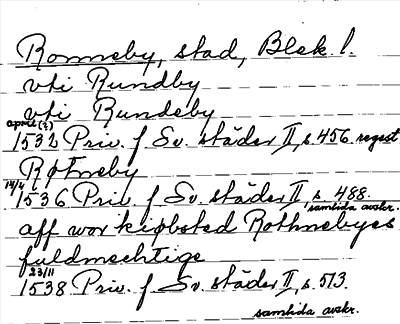 Ronneby, stad, Blek. l.
vti Rundby
vti Rundeby
april (?)
1532 Priv. f Sv. städer II, s 456 regest
Røtneby
14/4
1536 Priv. f Sv. städer II, s 488.
samtida avskr.
aff wor kiøbsted Rothnebyes
fuldmechtige
23/11
1538 Priv. f. Sv. städer II, s. 513.
samtida avskr.